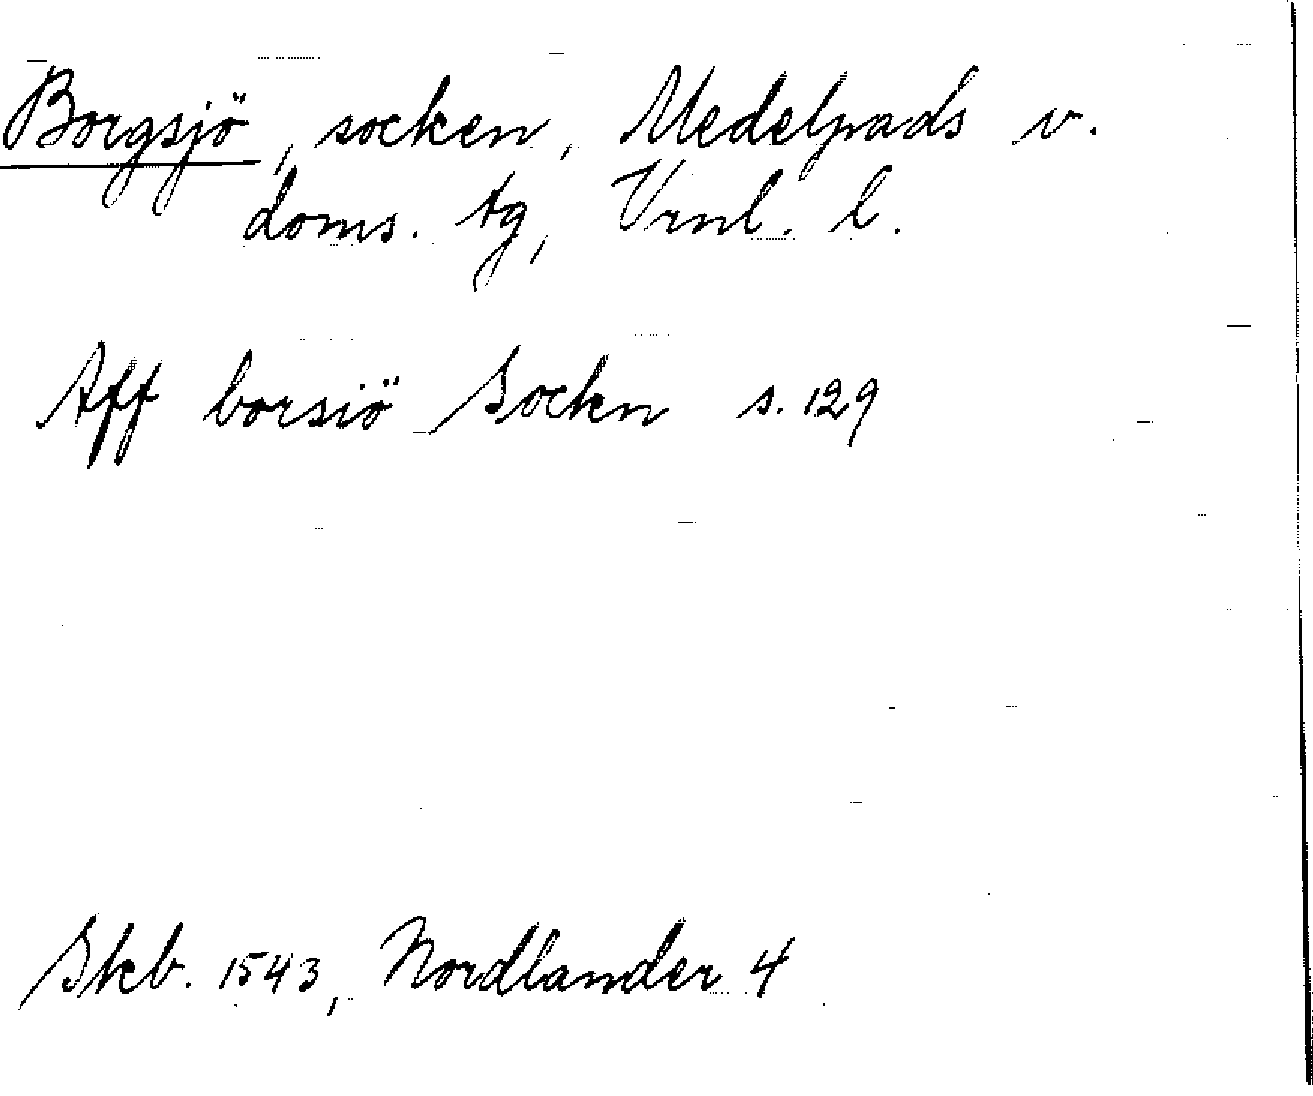 Borgsjö, socken, Medelpads v.
doms. tg, Vrnl. l.
Aff borsiö Sockn s. 129
Skb. 1543, Nordlander 4